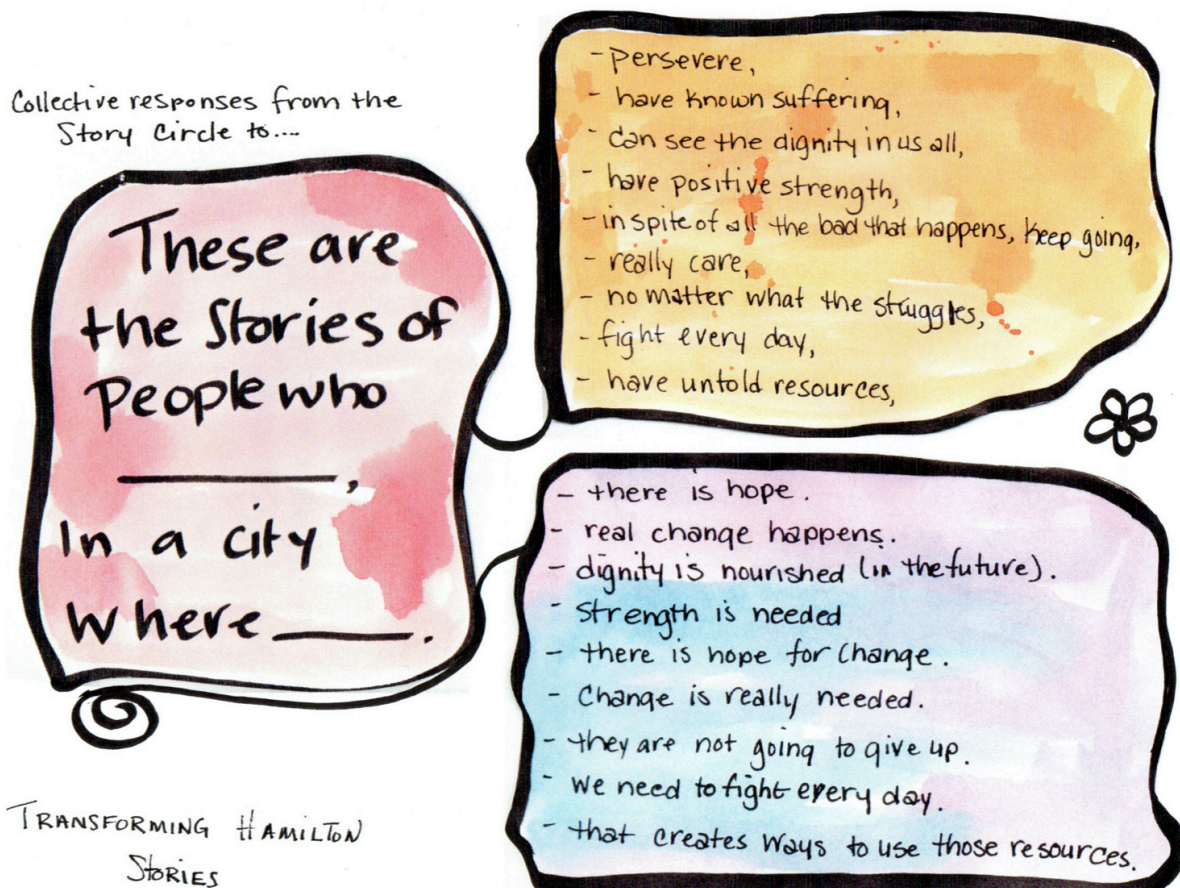 Collective responses from the
Story Circle to....
These are
the Stories of
People who
_________,
In a city
Where _____.
- persevere,
- have known suffering,
- can see the dignity in us all,
- have positive strength,
- in spite of all the bad that happens, keep going,
- really care,
- no matter what the struggles,
- fight every day,
- have untold resources,
- there is hope.
- real change happens.
- dignity is nourished (in the future).
- Strength is needed
- there is hope for change.
- Change is really needed.
- they are not going to give up.
- we need to fight every day.
- that creates ways to use those resources.
TRANSFORMING HAMILTON
STORIES